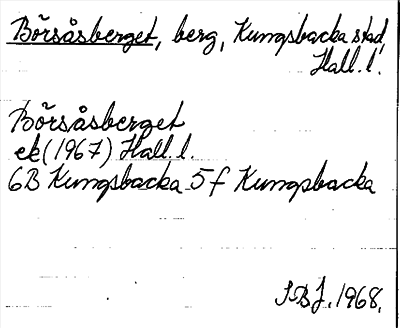 Börsåsberget, berg, Kungsbacka stad,
Hall. l.
Börsåsberget
ek (1967) Hall. l.
6B Kungsbacka 5f Kungsbacka
S.B.J. 1968.